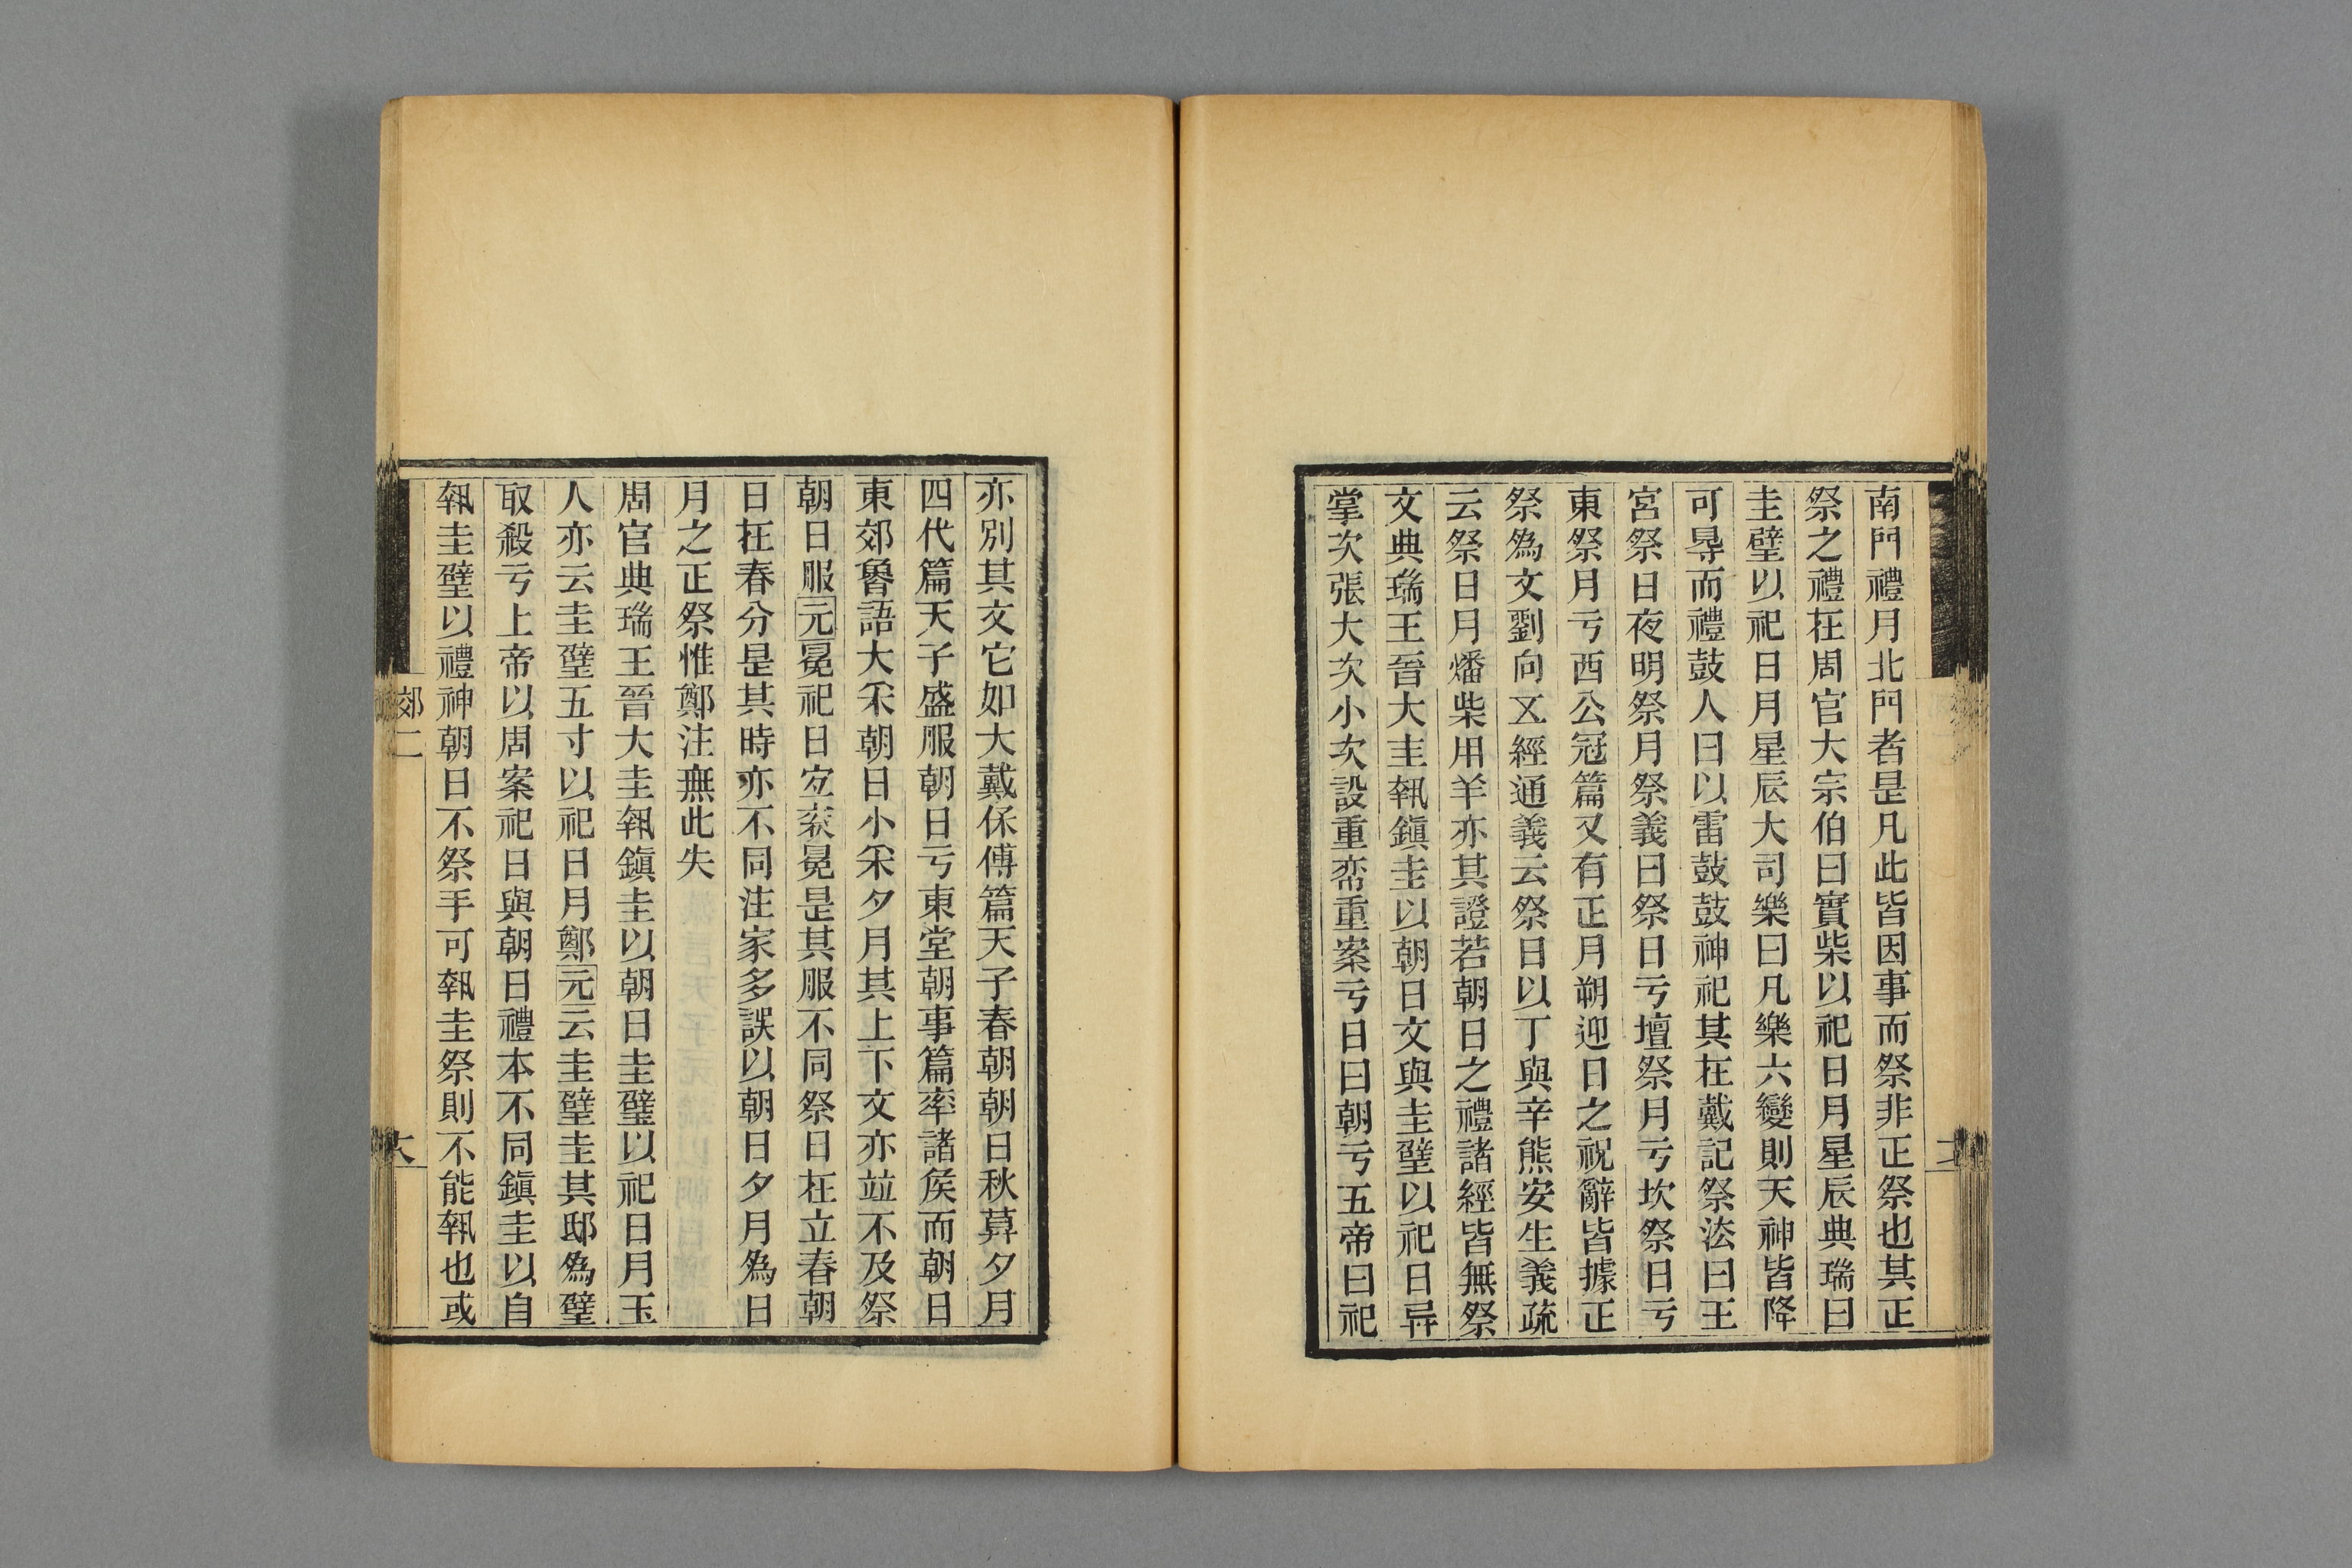 南門禮月北門者是凡此皆因事而祭非正祭也其正
祭之禮在周官大宗伯曰實柴以祀日月星辰典瑞曰
圭璧以祀日月星辰大司樂曰凡樂六變則天神皆降
可㝵而禮鼓人曰以雷鼓鼓神祀其在戴記祭法曰王
宮祭日夜明祭月祭義曰祭日亏壇祭月亏坎祭日亏
東祭月亏西公冠篇又有正月朔迎日之祝辭皆據正
祭爲文劉向㐅經通義云祭日以丁與辛熊安生義疏
云祭日月燔柴用羊亦其證若朝日之禮諸經皆無祭
文典瑞王晉大圭執鎭圭以朝日文與圭璧以祀日异
掌次張大次小次設重帟重案亏日曰朝亏五帝曰祀
亦別其文它如大戴保傅篇天子春朝朝日秋莫夕月
四代篇天子盛服朝日亏東堂朝事篇率諸矦而朝日
東郊魯語大采朝日小采夕月其上下文亦竝不及祭
朝日服元冕祀日宐衮冕是其服不同祭日在立春朝
日在春分是其時亦不同注家多誤以朝日夕月爲日
月之正祭惟鄭注無此失
周官典瑞王晉大圭執鎭圭以朝日圭璧以祀日月玉
人亦云圭璧五寸以祀日月鄭元云圭璧圭其邸爲璧
取殺亏上帝以周案祀日與朝日禮本不同鎭圭以自
執圭璧以禮神朝日不祭手可執圭祭則不能執也或
郊二